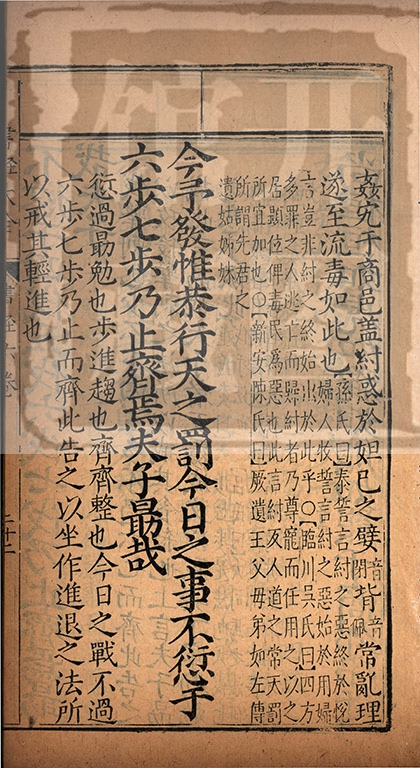 姦宄于商邑蓋紂惑於妲己之嬖音閉背音佩常亂理
遂至流毒如此也孫氏曰泰誓言紂之惡終於悅
婦人牧誓言紂之惡始於用婦
言豈非紂之終始出於此乎○臨川吳氏曰四方
多罪之人逃亡而歸紂者乃尊寵而任用之以之
居顯位俾毒民爲惡也此言紂反人道之常天罰
所宜加也○新安陳氏曰厥遺王父母弟如左傳
所謂先君之
遺姑姊妹
今予發惟恭行天之罰今日之事不愆于
六步七步乃止齊焉夫子勗哉
愆過勗勉也步進趨也齊齊整也今日之戰不過
六步七步乃止而齊此告之以坐作進退之法所
以戒其輕進也
書經六卷